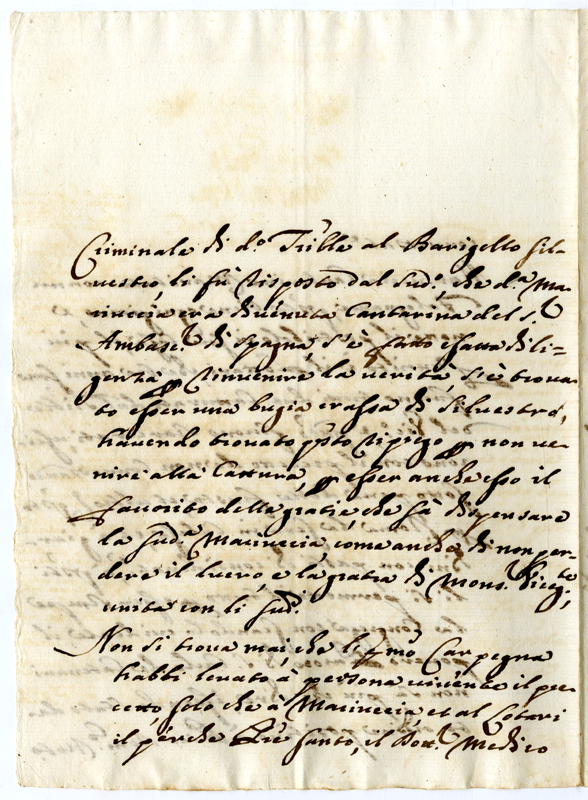 Criminale di d.o Trib.le al Barigello Sil-
uestro, li fù risposto dal sud.o, che d.a Ma-
riuccia era diuenuta Cantarina del S.r
Ambasc.r di Spagna, s'è fatto esatta dili-
genza p rinuenire la uerità, s'è troua-
to esser una bugia crassa di Siluestro,
hauendo trouato q̃sto ripiego p non ue-
nire alla Cattura, p esser anche esso il
fauorito della gratia, che sà dispensare
la sud.a Mariuccia, come anche di non per-
dere il lucro, e la gratia di Mons.r Viceg.te
unita con li sud.i
Non si troua mai, che l'E͂mo Carpegna
habbi leuato à persona uiuente il pre-
cetto solo che à Mariuccia, et al Lotari
il perche Lui santo, il Dott.r Medico